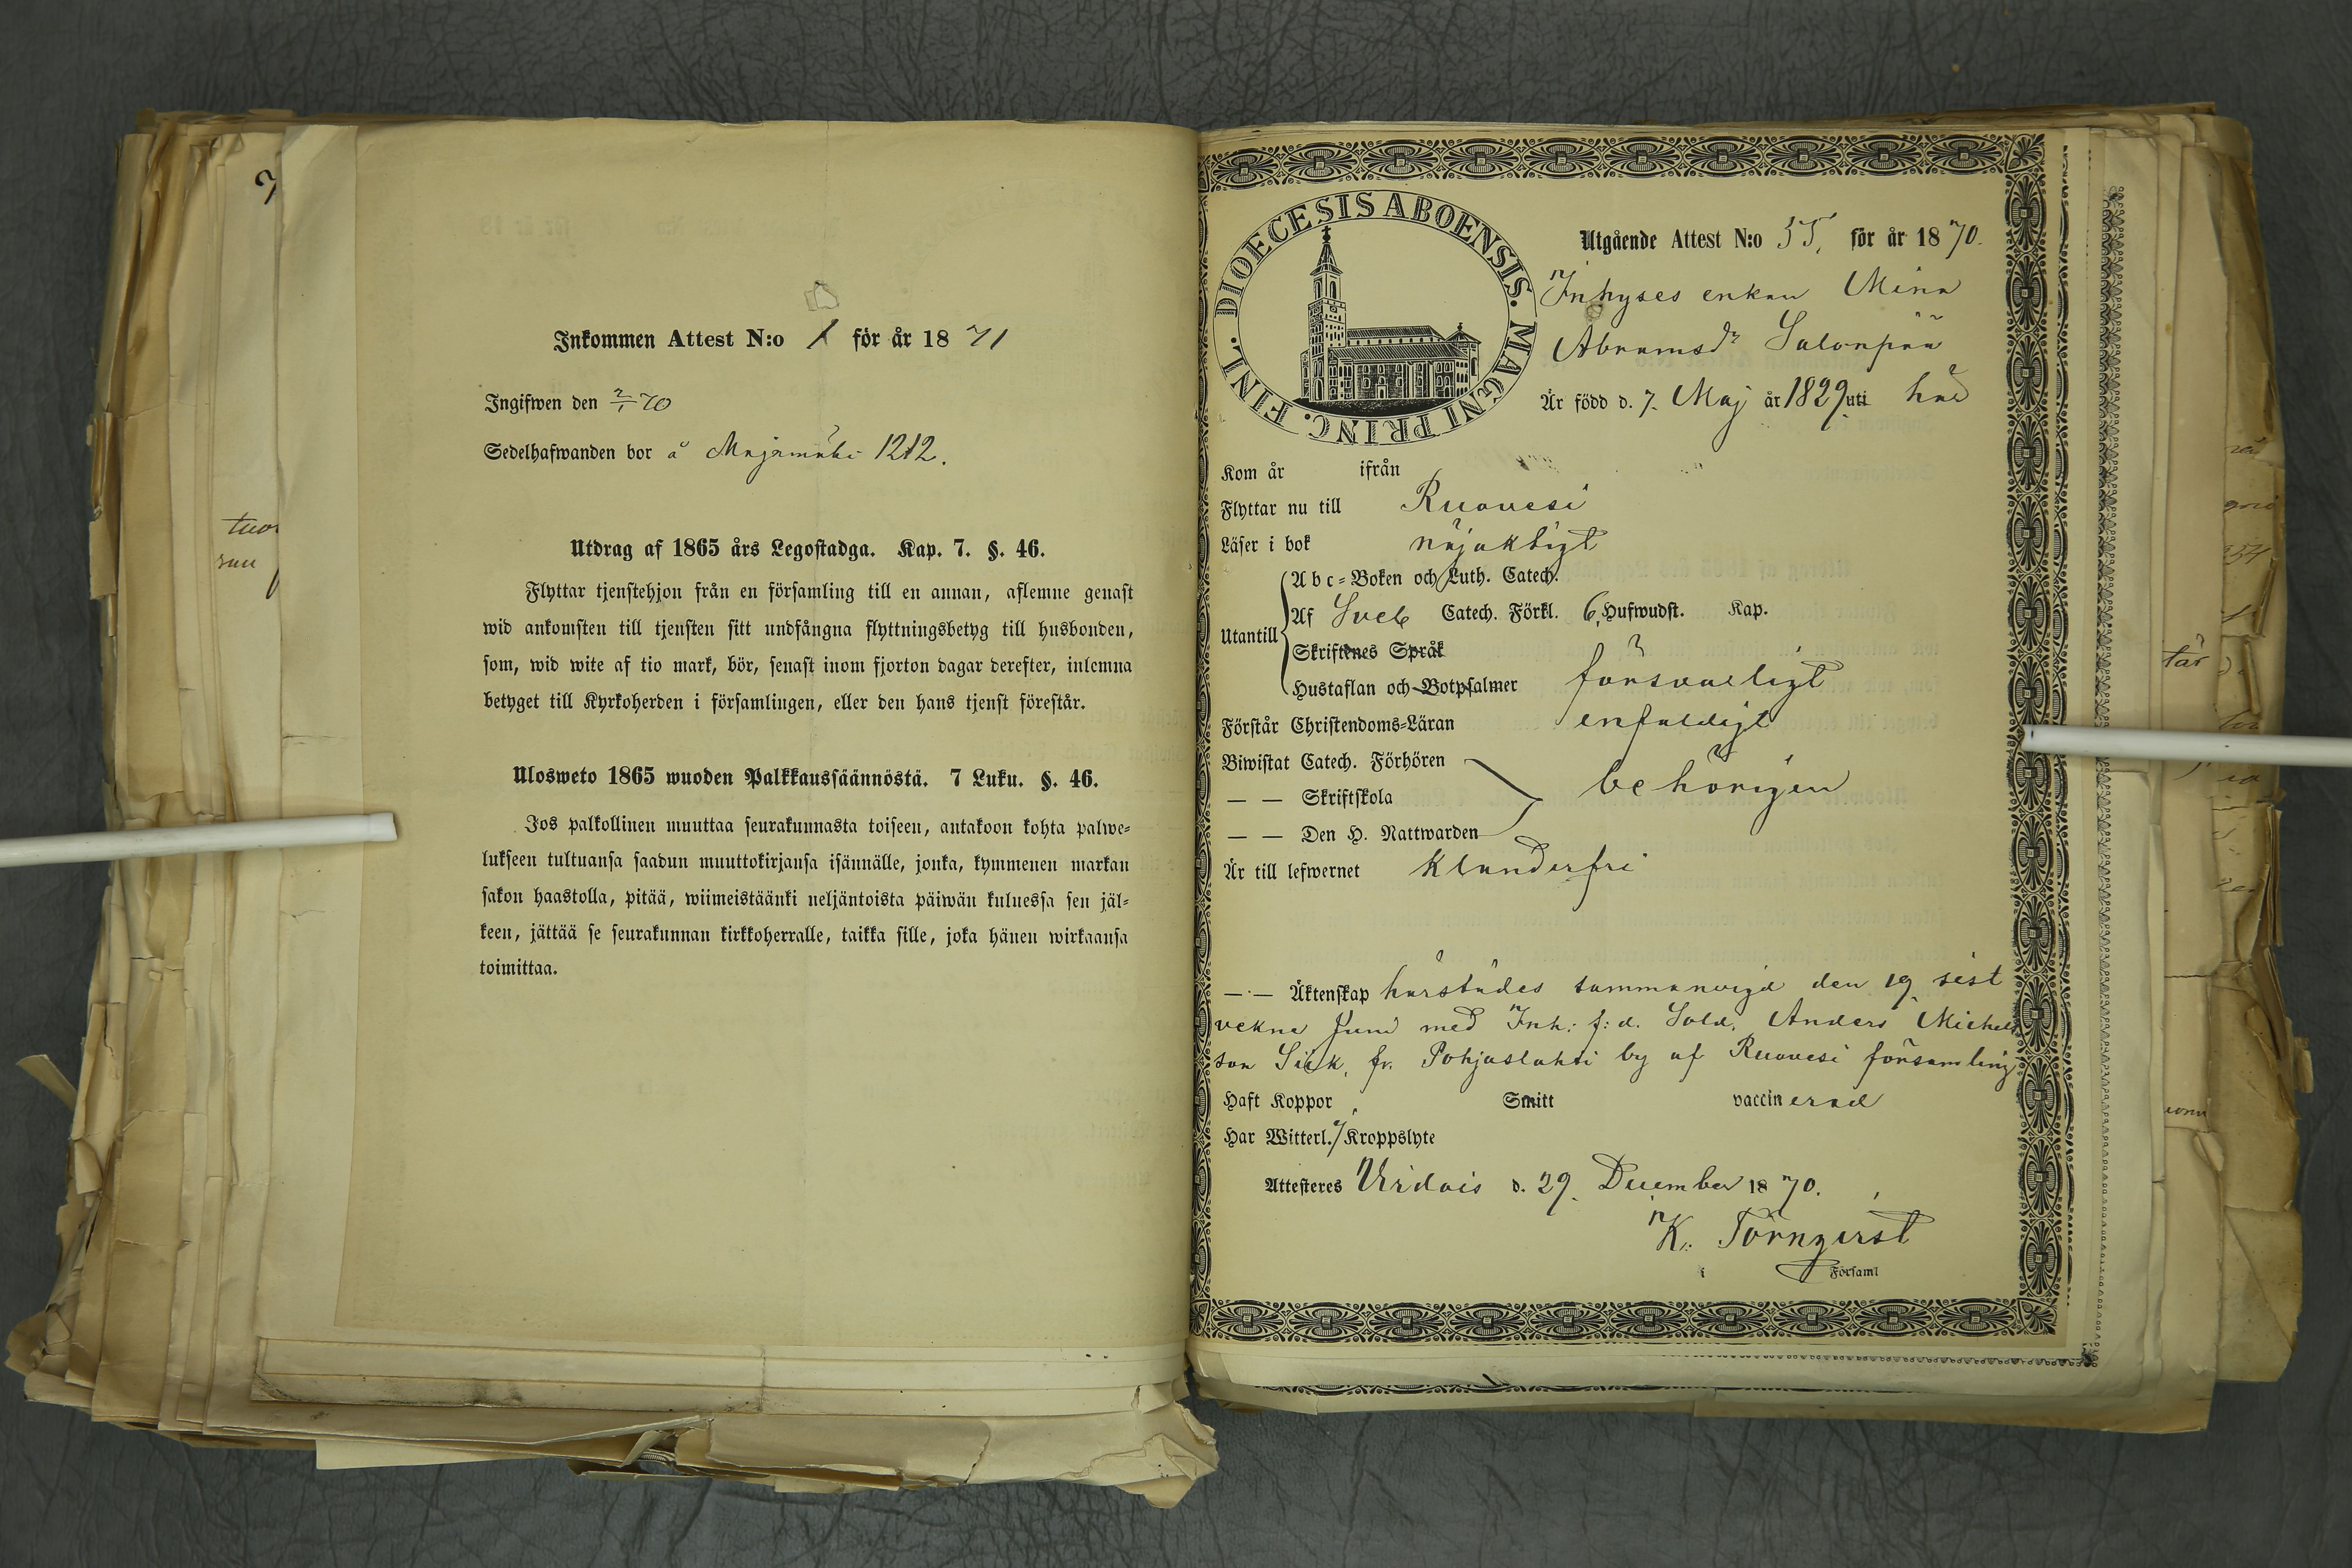 Inkommen Attest N:o 1 för år 1871
Ingifwen den 2/1 70
Sedelhafwanden bor å Majamäki 1212.
Utdrag af 1865 års Legostadga. Kap. 7. §. 46.
Flyttar tjenstehjon från en församling till en annan, aflemne genast
wid ankomsten till tjensten sitt undfångna flyttningsbetyg till husbonden,
som, wid wite af tio mark, bör, senast inom fjorton dagar derefter, inlemna
betyget till Kyrkoherden i församlingen, eller den hans tjenst förestår.
Ulosweto 1865 wuoden Palkkaussäännöstä. 7 Luku. §. 46.
Jos palkollinen muuttaa seurakunnasta toiseen, antakoon kohta palwe-
lukseen tultuansa saadun muuttokirjansa isännälle, jonka, kymmenen markan
sakon haastolla, pitää, wiimeistäänki neljäntoista päiwän kuluessa sen jäl-
keen, jättää se seurakunnan kirkkoherralle, taikka sille, joka hänen wirkaansa
toimittaa.
DIOECESIS ABOENSIS. MAGNI PRINC. FINL.
Utgående Attest N:o 55, för år 1870.
Inhyses enkan Mina
Abramsdr Salonpää
Är född d. 7. Maj år 1829 uti här
Kom år ifrån
Flyttar nu till Ruovesi
Läser i bok nöjaktigt
Utantill
Abc-Boken och Luth. Catech.
Af Sveb Catech. Förkl. 6, Hufwudst. Kap.
Skriftenes Språk
Hustaflan och Botpsalmer försvarligt
Förstår Christendoms-Läran enfaldigt
Biwistat Catech. Förhören
— — Skriftskola behörigen
— — Den H. Nattwarden
Är till lefwernet klanderfri
— — Äktenskap härstädes sammanvigd den 19 sist
vekne Juni med Inh: f:d. Sold. Anders Michels
son Silk, fr. Pohjaslahti by af Ruovesi församling
Haft Koppor Smitt vaccinerad
Har Witterl. Kroppslyte
Attesteres Virdois d. 29. December 1870.
K. Törnqvist
Församl